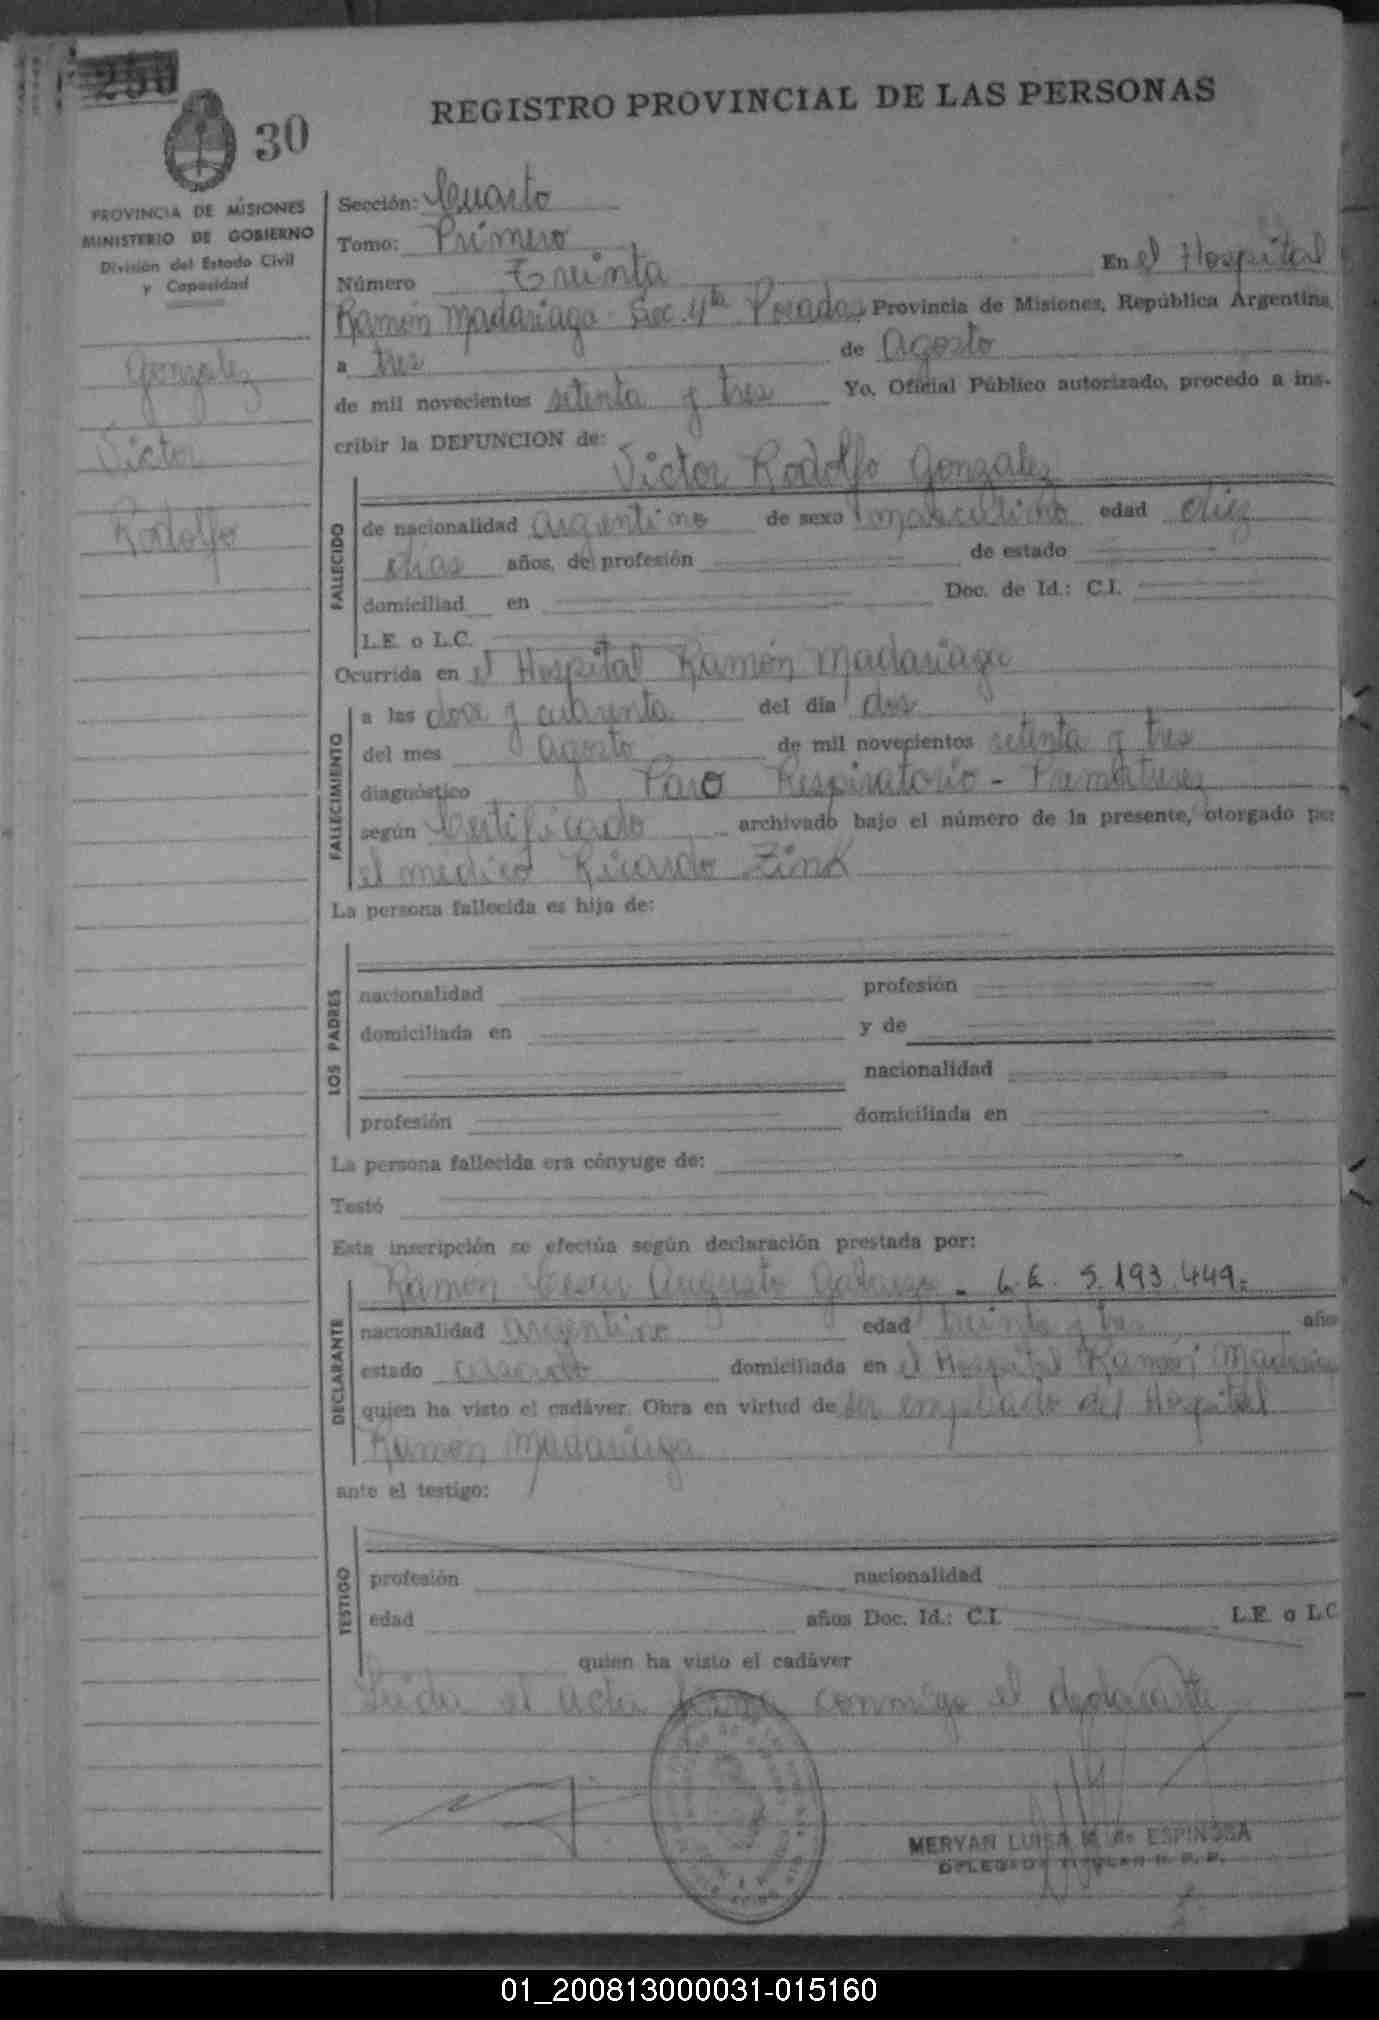 250
30
REGISTRO PROVINCIAL DE LAS PERSONAS
PROVINCIA DE MISIONES
MINISTERIO DE GOBIERNO
División del Estado Civil
y Capacidad
Gonzalez
Victor
Rodolfo
Sección: Cuarto
Tomo: Primero
Número Treinta En el Hospital
Ramón Madariaga - Sec. 4ta Posadas Provincia de Misiones, República Argentina,
a tres de Agosto
de mil novecientos setenta y tres Yo, Oficial Público autorizado, procedo a ins-
cribir la DEFUNCION de:
Victor Rodolfo Gonzalez
FALLECIDO
de nacionalidad argentino de sexo masculino edad diez
días años, de profesión de estado
domiciliad en Doc. de Id.: C.I.
L.E. o L.C.
Ocurrida en el Hospital Ramón Madariaga
FALLECIMIENTO
a las doce y cuarenta del día dos
del mes agosto de mil novecientos setenta y tres
diagnóstico Paro Respiratorio - Prematurez
según Certificado archivado bajo el número de la presente, otorgado por
el medico Ricardo Zink
La persona fallecida es hija de:
LOS PADRES
nacionalidad profesión
domiciliada en y de
nacionalidad
profesión domiciliada en
La persona fallecida era cónyuge de:
Testó
Esta inscripción se efectúa según declaración prestada por:
DECLARANTE
Ramon Cesar Augusto - L.E. 5.193.449.-
nacionalidad argentino edad treinta y tres año
estado casado domiciliada en el Hospital Ramon Madariaga
quien ha visto el cadáver. Obra en virtud de ser empleado del Hospital
Ramon Madariaga
ante el testigo:
TESTIGO
profesión nacionalidad
edad años Doc. Id.: C.I. L.E. o L.C
quien ha visto el cadáver
Leida el acta firma conmigo el declarante
MERYAN LUISA M. de ESPINOSA
DELEGADA TITULAR R. P. P.
01_200813000031-015160